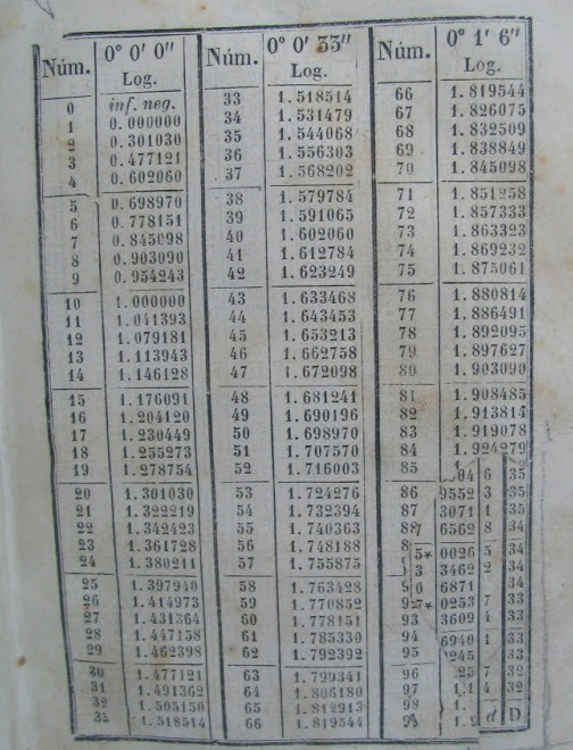 0° 0' 0" 0° 0' 33" 0° 1' 6"
Núm. Log. Núm. Log. Núm. Log.
0 inf. neg. 33 1.518514 66 1.819544
1 0.000000 34 1.531479 67 1.826075
2 0.301030 35 1.544068 68 1.832509
3 0.477121 36 1.556303 69 1.838849
4 0.602060 37 1.568202 70 1.845098
5 0.698970 38 1.579784 71 1.851258
6 0.778151 39 1.591065 72 1.857333
7 0.845098 40 1.602060 73 1.863323
8 0.903090 41 1.612784 74 1.869232
9 0.954243 42 1.623249 75 1.875061
10 1.000000 43 1.633468 76 1.880814
11 1.041393 44 1.643453 77 1.886491
12 1.079181 45 1.653213 78 1.892095
13 1.113943 46 1.662758 79 1.897627
14 1.146128 47 1.672098 80 1.903090
15 1.176091 48 1.681241 81 1.908485
16 1.204120 49 1.690196 82 1.913814
17 1.230449 50 1.698970 83 1.919078
18 1.255273 51 1.707570 84 1.924279
19 1.278754 52 1.716003 85 04 6 35
20 1.301030 53 1.724276 86 9552 3 35
21 1.322219 54 1.732394 87 3071 1 35
22 1.342423 55 1.740363 88 6562 8 34
23 1.361728 56 1.748188 5* 0026 5 34
24 1.380211 57 1.755875 3 3462 2 34
25 1.397940 58 1.763428 0 6871 34
26 1.414973 59 1.770852 7* 0253 7 33
27 1.431364 60 1.778151 93 3609 4 33
28 1.447158 61 1.785330 94 6940 1 33
29 1.462398 62 1.792392 95 0245 33
30 1.477121 63 1.799341 96 25 7 32
31 1.491362 64 1.806180 97 4 32
32 1.505150 65 1.812913 98 1. d D
33 1.518514 66 1.819544